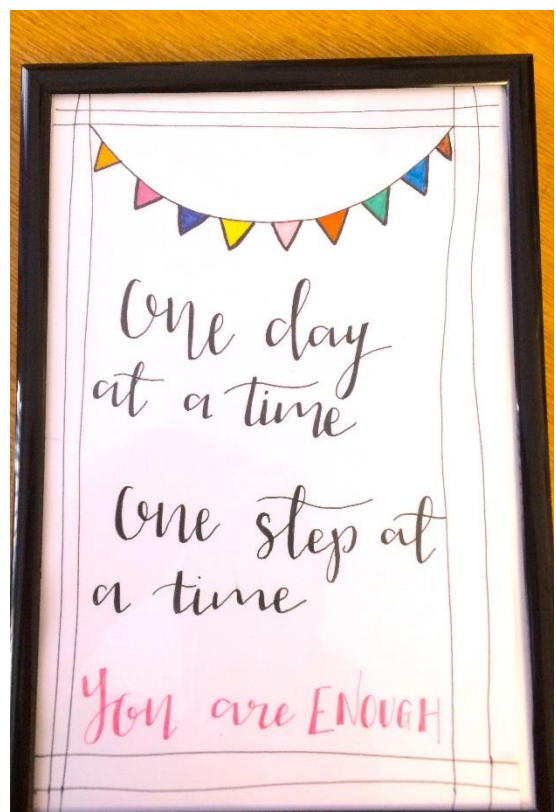 One day
at a time
One step at
a time
You are ENOUGH